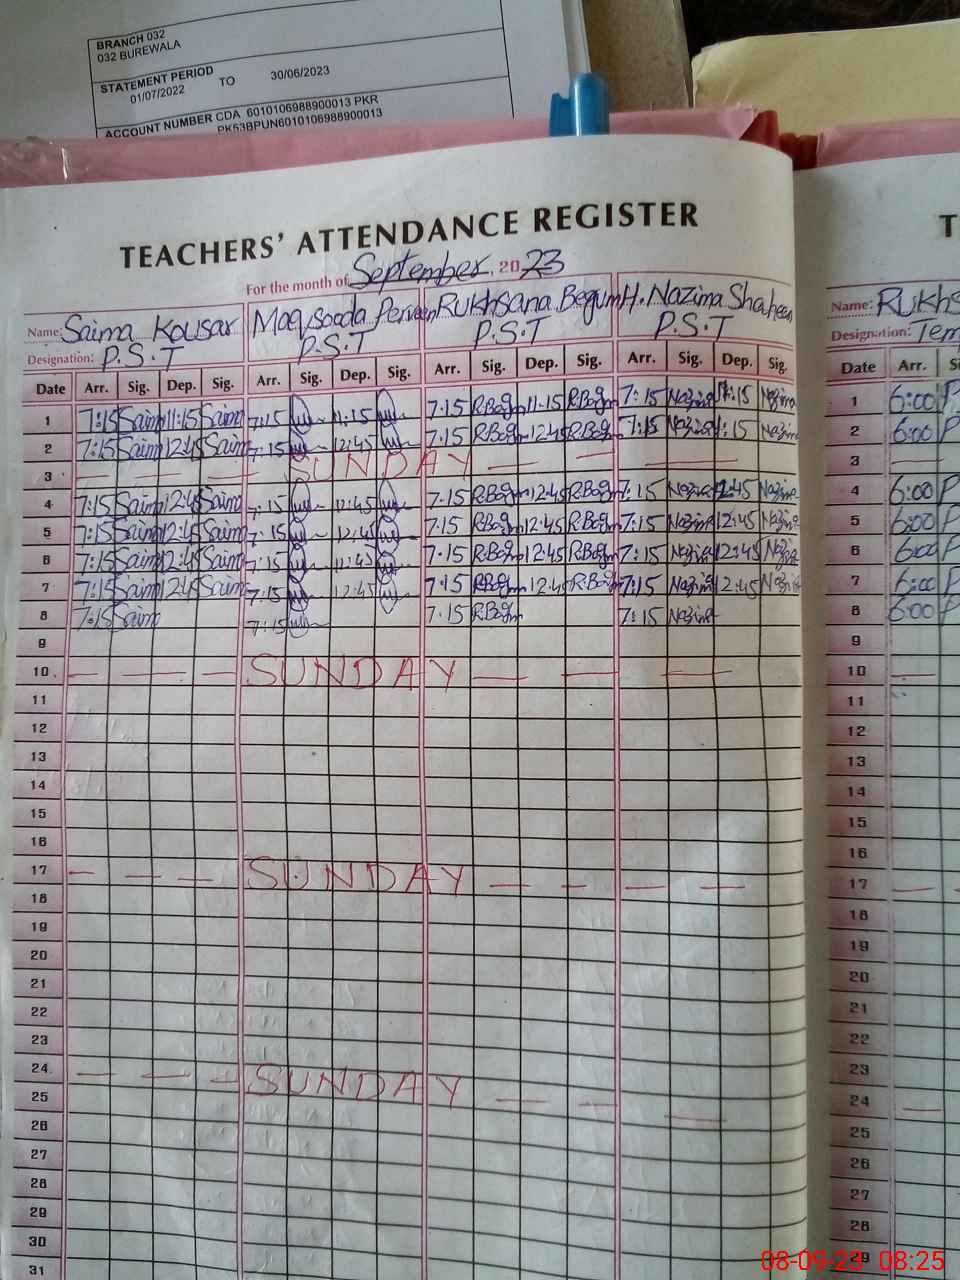 BRANCH 032
032 BUREWALA
STATEMENT PERIOD
01/07/2022 TO 30/06/2023
ACCOUNT NUMBER CDA 6010106988900013 PKR
PK53BPUN6010106988900013
TEACHERS' ATTENDANCE REGISTER
For the month of September, 2023
Name: Saima Kousar Maqsooda Perveen Rukhsana Begum H. Nazima Shaheen
Designation: P.S.T P.S.T P.S.T P.S.T
Date Arr. Sig. Dep. Sig. Arr. Sig. Dep. Sig. Arr. Sig. Dep. Sig. Arr. Sig. Dep. Sig.
1 7:15 Saim 11:15 Saim 7:15 11:15 7.15 RBegm 11-15 RBegm 7:15 Nazima 11:15 Nazima
2 7:15 Saim 12:45 Saim 7:15 12:45 7.15 RBegm 12:45 RBegm 7:15 Nazima 1:15 Nazima
3 — — — — SUNDAY — — —
4 7:15 Saim 12:45 Saim 7:15 12:45 7.15 RBegm 12:45 RBegm 7:15 Nazima 12:45 Nazima
5 7:15 Saim 12:45 Saim 7:15 12:45 7.15 RBegm 12:45 RBegm 7:15 Nazima 12:45 Nazima
6 7:15 Saim 12:45 Saim 7:15 12:45 7.15 RBegm 12:45 RBegm 7:15 Nazima 12:45 Nazima
7 7:15 Saim 12:45 Saim 7:15 12:45 7:15 RBegm 12:45 RBegm 7:15 Nazima 12:45 Nazima
8 7:15 Saim 7:15 7.15 RBegm 7:15 Nazima
9
10 — — — SUNDAY — — —
11
12
13
14
15
16
17 — — — SUNDAY — — — —
18
19
20
21
22
23
24 — — — SUNDAY — — —
25
26
27
28
29
30
31
T
Name: Rukhs
Designation: Tem
Date Arr. Si
1 6:00 P
2 6:00 P
3 —
4 6:00 P
5 6:00 P
6 6:00 P
7 6:00 P
8 6:00 P
9
10 —
11
12
13
14
15
16
17 — —
18
19
20
21
22
23
24 —
25
26
27
28
29
08-09-23 08:25